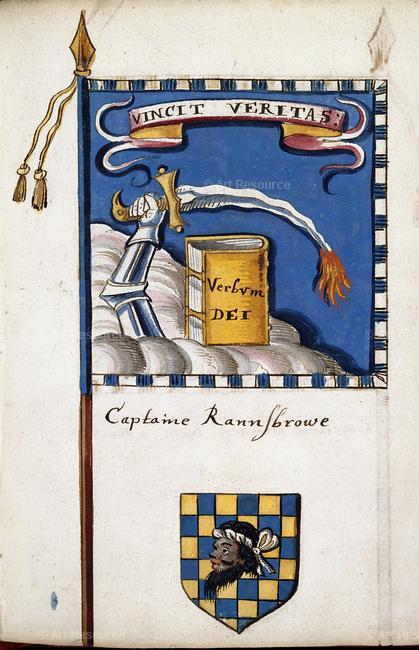 VINCIT VERITAS:
© Art Resource
Verbvm
DEI
Captaine Rannſbrowe
© Art Resource